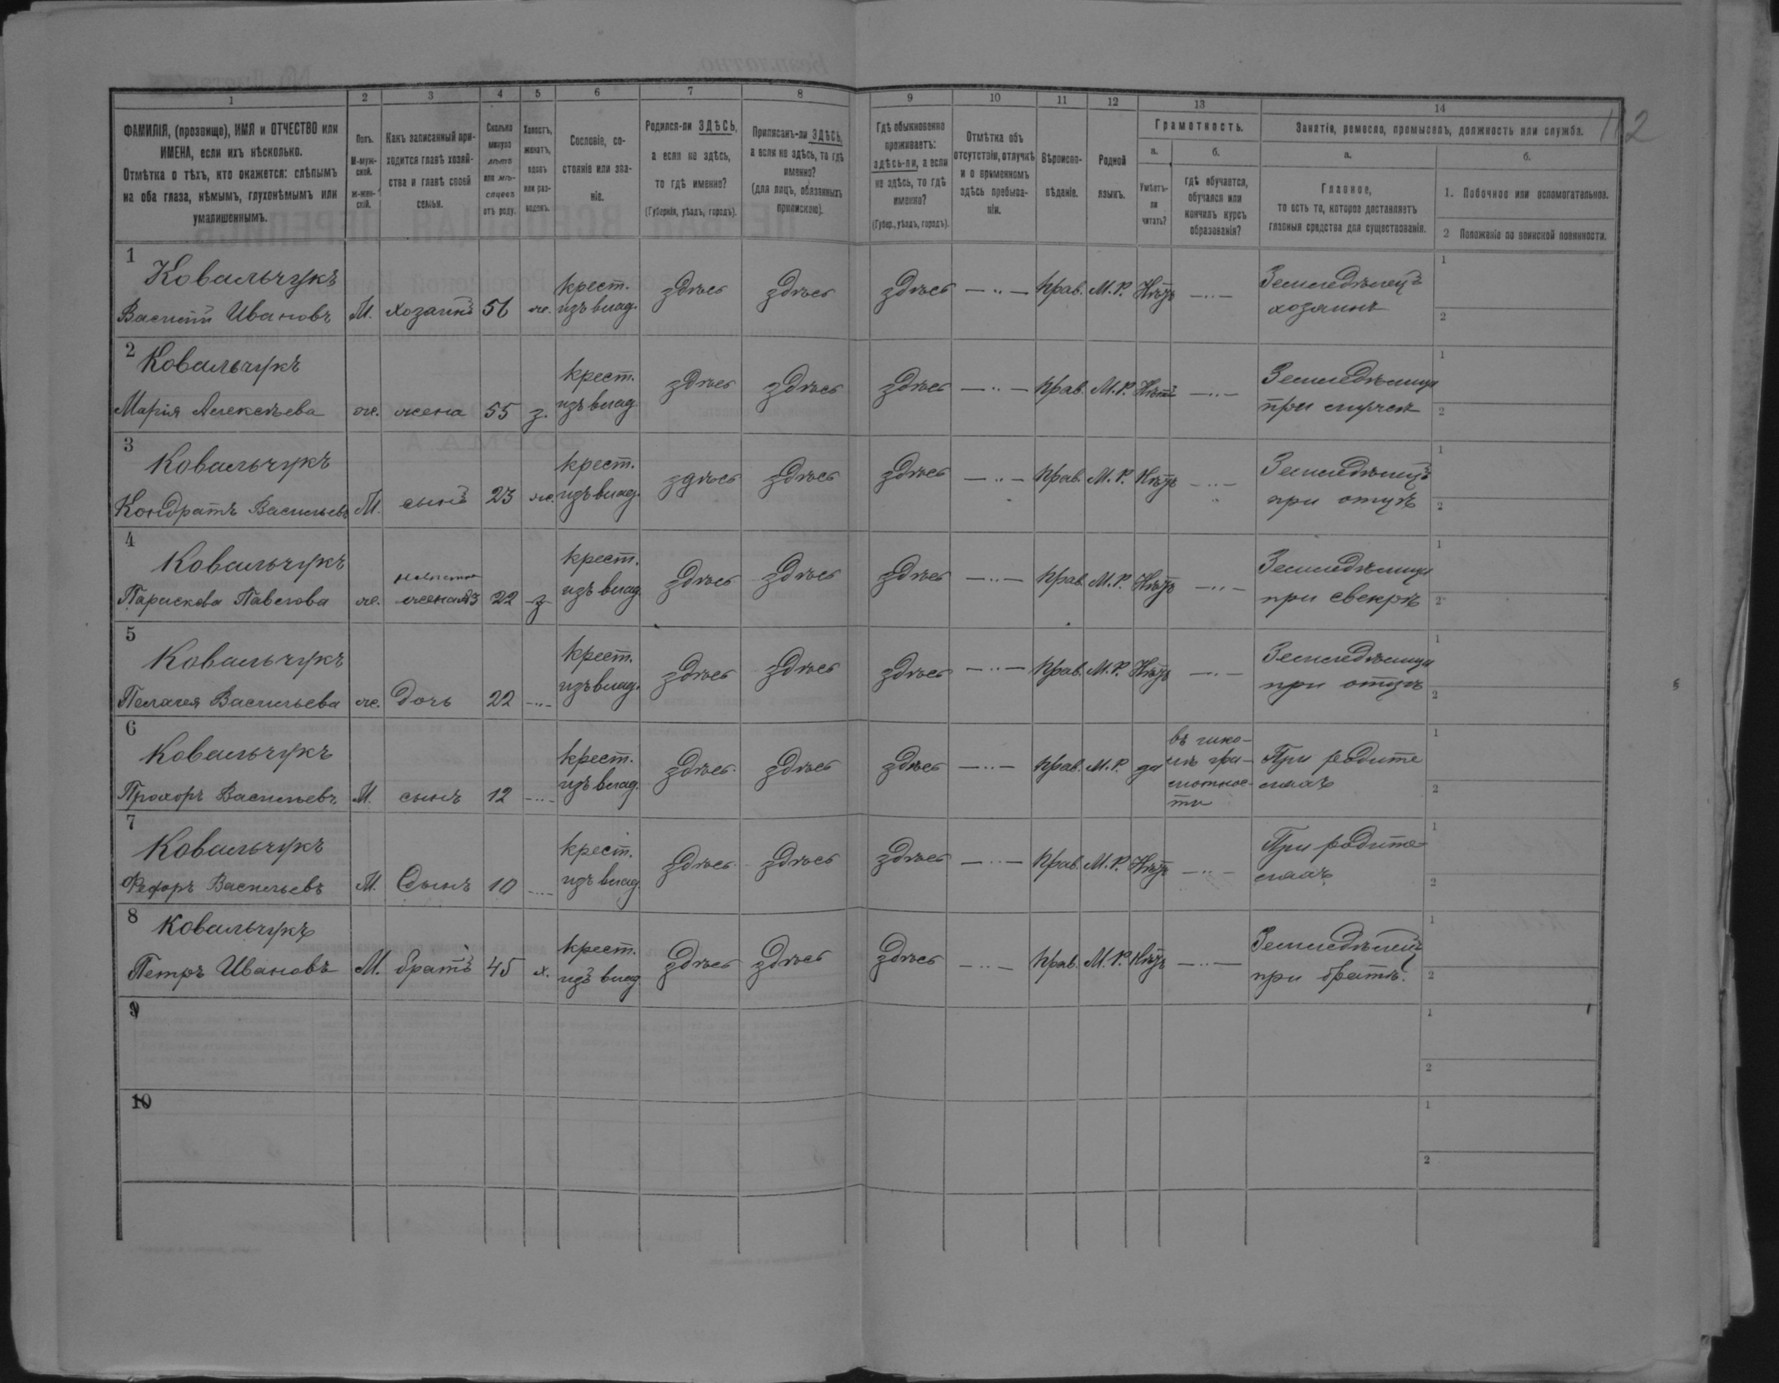 112
1 2 3 4 5 6 7 8 9 10 11 12 13 14
ФАМИЛІЯ, (прозвище), ИМЯ и ОТЧЕСТВО или
ИМЕНА, если ихъ нѣсколько.
Отмѣтка о тѣхъ, кто окажется: слѣпымъ
на оба глаза, нѣмымъ, глухонѣмымъ или
умалишеннымъ.
Полъ.
М-муж-
ской.
Ж-жен-
скій.
Какъ записанный при-
ходится главѣ хозяй-
ства и главѣ своей
семьи.
Сколько
минуло
лѣтъ
или мѣ-
сяцевъ
отъ роду.
Холостъ,
женатъ,
вдовъ
или раз-
веденъ.
Сословіе, со-
стояніе или зва-
ніе.
Родился-ли ЗДѢСЬ,
а если не здѣсь,
то гдѣ именно?
(Губернія, уѣздъ, городъ).
Приписанъ-ли ЗДѢСЬ,
а если не здѣсь, то гдѣ
именно?
(для лицъ, обязанныхъ
припискою).
Гдѣ обыкновенно
проживаетъ:
здѣсь-ли, а если
не здѣсь, то гдѣ
именно?
(Губер., уѣздъ, городъ).
Отмѣтка объ
отсутствіи, отлучкѣ
и о временномъ
здѣсь пребыва-
ніи.
Вѣроиспо-
вѣданіе.
Родной
языкъ.
Грамотность.
а.
Умѣетъ-
ли
читать?
б.
гдѣ обучается,
обучался или
кончилъ курсъ
образованія?
Занятіе, ремесло, промыселъ, должность или служба.
а.
Главное,
то есть то, которое доставляетъ
главныя средства для существованія.
б.
1. Побочное или вспомогательное.
2 Положеніе по воинской повинности.
1
Ковальчукъ
Василій Ивановъ М. хозяинъ 56 ж. крест. изъ влад. здѣсь здѣсь здѣсь — ·· — Прав. М.Р. Нѣтъ — ·· — Земледѣлецъ
хозяинъ
1
2
2
Ковальчукъ
Марія Алексѣева ж. жена 55 з. крест. изъ влад. здѣсь здѣсь здѣсь — ·· — Прав. М.Р. Нѣтъ — ·· — Земледѣлица
при мужѣ
1
2
3
Ковальчукъ
Кондратъ Васильевъ М. сынъ 23 ж. крест. изъ влад. здѣсь здѣсь здѣсь — ·· — Прав. М.Р. Нѣтъ — ·· — Земледѣлецъ
при отцѣ
1
2
4
Ковальчукъ
Параскева Павлова ж. невѣстка жена №3 22 з крест. изъ влад. здѣсь здѣсь здѣсь — ·· — Прав. М.Р. Нѣтъ — ·· — Земледѣлица
при свекрѣ
1
2
5
Ковальчукъ
Пелагея Васильева ж. дочь 22 — ·· — крест. изъ влад. здѣсь здѣсь здѣсь — ·· — Прав. М.Р. Нѣтъ — ·· — Земледѣлица
при отцѣ
1
2
6
Ковальчукъ
Прохоръ Васильевъ М. сынъ 12 — ·· — крест. изъ влад. здѣсь здѣсь здѣсь — ·· — Прав. М.Р. да въ шко-
лѣ гра-
мотнос-
ти
При родите
ляхъ
1
2
7
Ковальчукъ
Федоръ Васильевъ М. Сынъ 10 — ·· — крест. изъ влад. здѣсь здѣсь здѣсь — ·· — Прав. М.Р. Нѣтъ — ·· — При родите
ляхъ
1
2
8
Ковальчукъ
Петръ Ивановъ М. братъ 45 х. крест. изъ влад. здѣсь здѣсь здѣсь — ·· — Прав. М.Р. Нѣтъ — ·· — Земледѣлецъ
при братѣ.
1
2
9
1
2
10
1
2